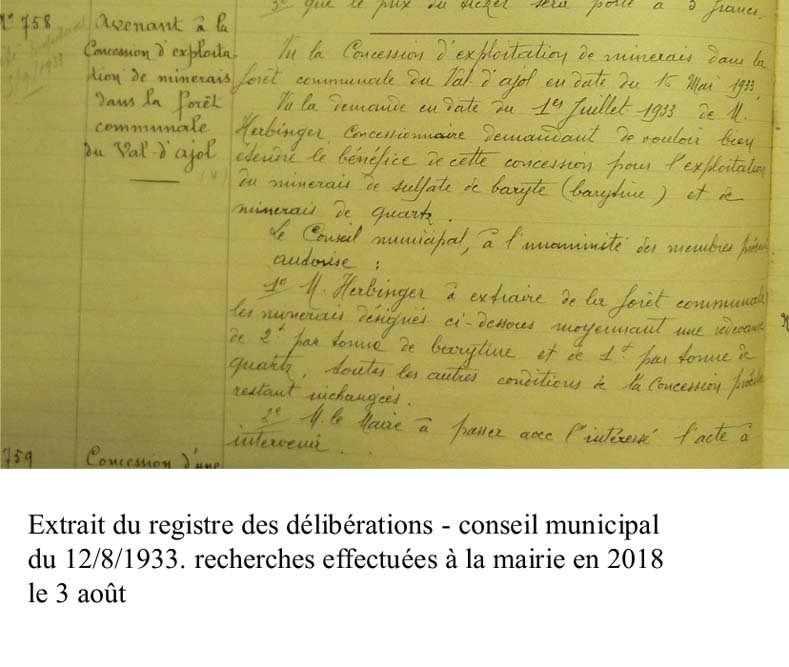 3° que le prix du ticket sera porté à 3 francs.
N° 758
Avenant à la
Concession d'exploita
tion de minerais
dans la forêt
communale
du Val-d'ajol
Vu la Concession d'exploitation de minerais dans la
forêt communale du Val d'ajol en date du 15 Mai 1933
Vu la demande en date du 1er Juillet 1933 de M.
Herbinger Concessionnaire demandant de vouloir bien
étendre le bénéfice de cette concession pour l'exploitation
du minerais de sulfate de baryte (barytine) et de
minerais de quartz.
Le Conseil municipal, à l'unanimité des membres
autorise :
1° M. Herbinger à extraire de la forêt communale
les minerais désignés ci-dessous moyennant une redevance
de 2f par tonne de barytine et de 1f par tonne de
quartz, toutes les autres conditions de la Concession
restant inchangées.
2° M. le Maire à passer avec l'intéressé l'acte à
intervenir.
759
Concession d'une
Extrait du registre des délibérations - conseil municipal
du 12/8/1933. recherches effectuées à la mairie en 2018
le 3 août